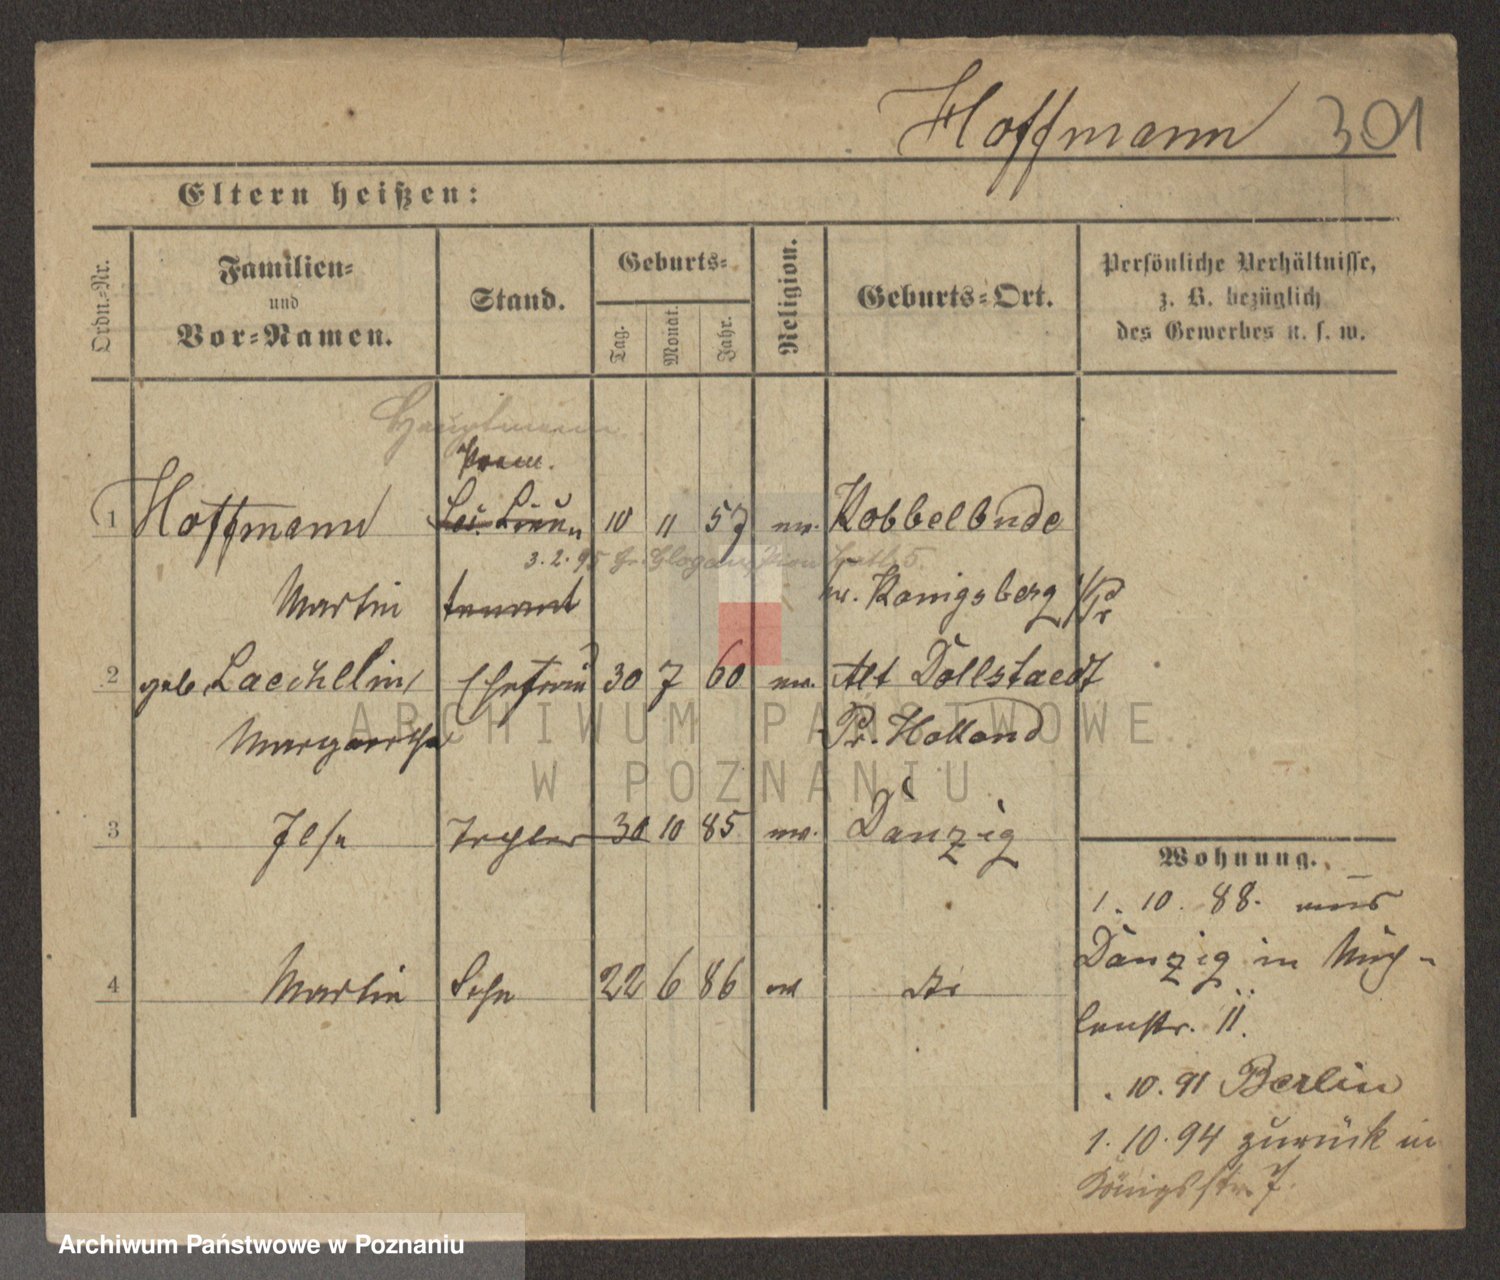 Hoffmann 301
Eltern heißen:
Ordn.-Nr.
Familien-
und
Vor-Namen.
Stand.
Geburts-
Tag.
Monat.
Jahr.
Religion.
Geburts-Ort.
Persönliche Verhältnisse,
z. B. bezüglich
des Gewerbes u. s. w.
Hauptmann
Prem.
1 Hoffmann Lieu 10 11 57 ev. Kobbelbude
3.2.95 Glogau
Martin tenant Kr. Königsberg i/Pr
2 geb. Laechelin Ehefrau 30 7 60 ev. Alt Dollstaedt
Margarethe Pr. Holland
3 Ilse Tochter 30 10 85 ev. Danzig
4 Martin Sohn 22 6 86 ev
Wohnung.
1. 10. 88. aus
Danzig in Müh-
lenstr. 11.
. 10. 91 Berlin
1. 10. 94 zurück in
Königsstr. 7
ARCHIWUM PAŃSTWOWE
W POZNANIU
Archiwum Państwowe w Poznaniu